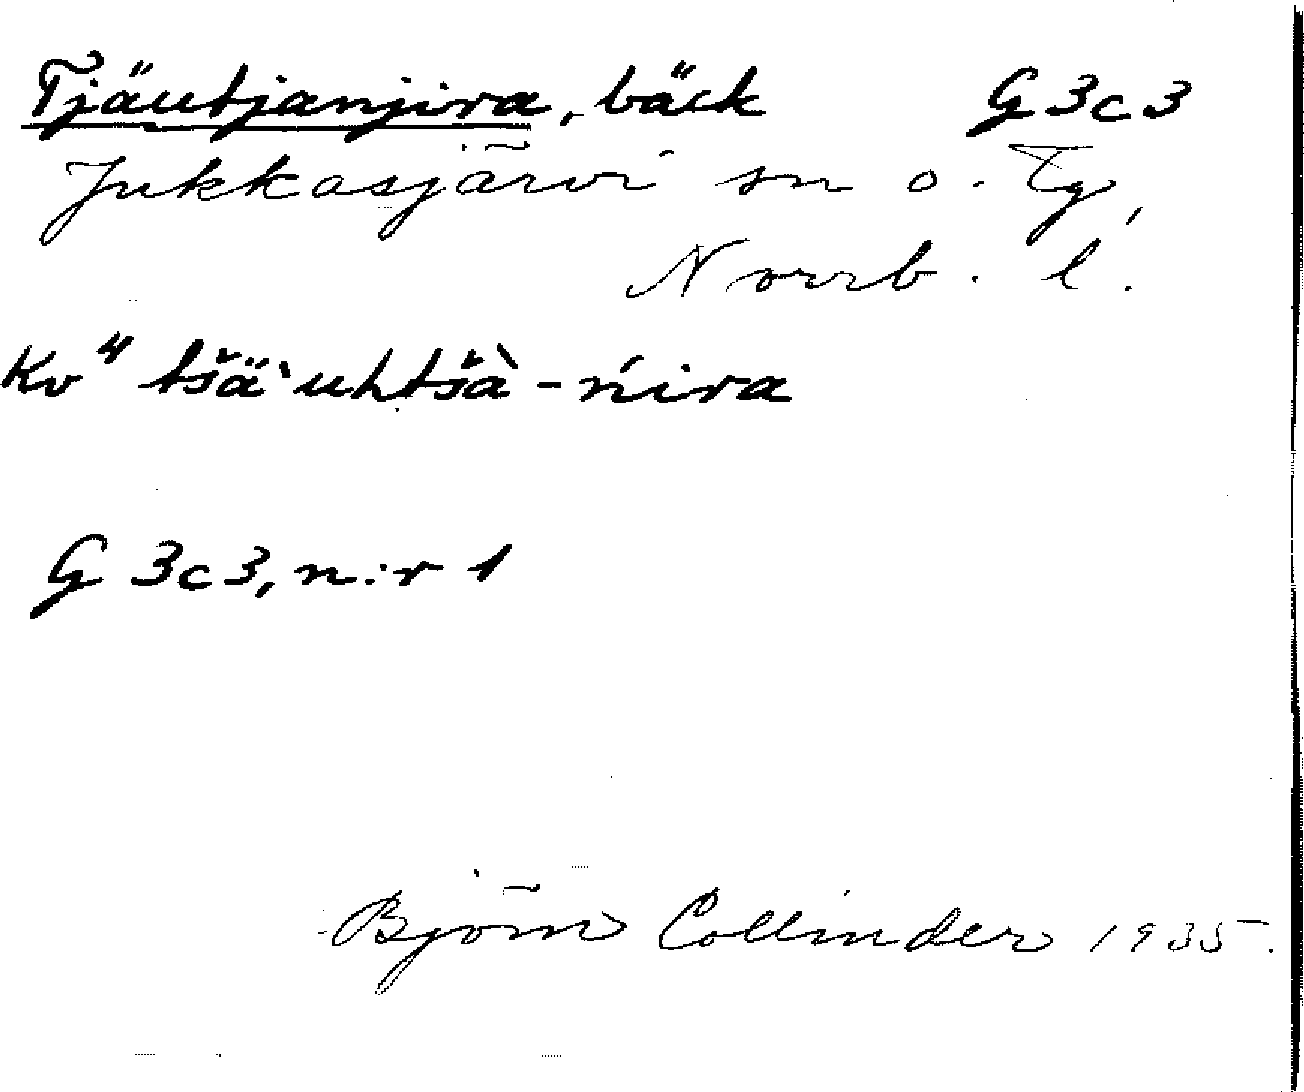 Tjäutjanjira, bäck G 3c3
Jukkasjärvi sn o. Tg,
Norrb. l.
Kv" tšä`uhtšà-ńira
G 3c3, n:r 1
Björn Collinder 1935.